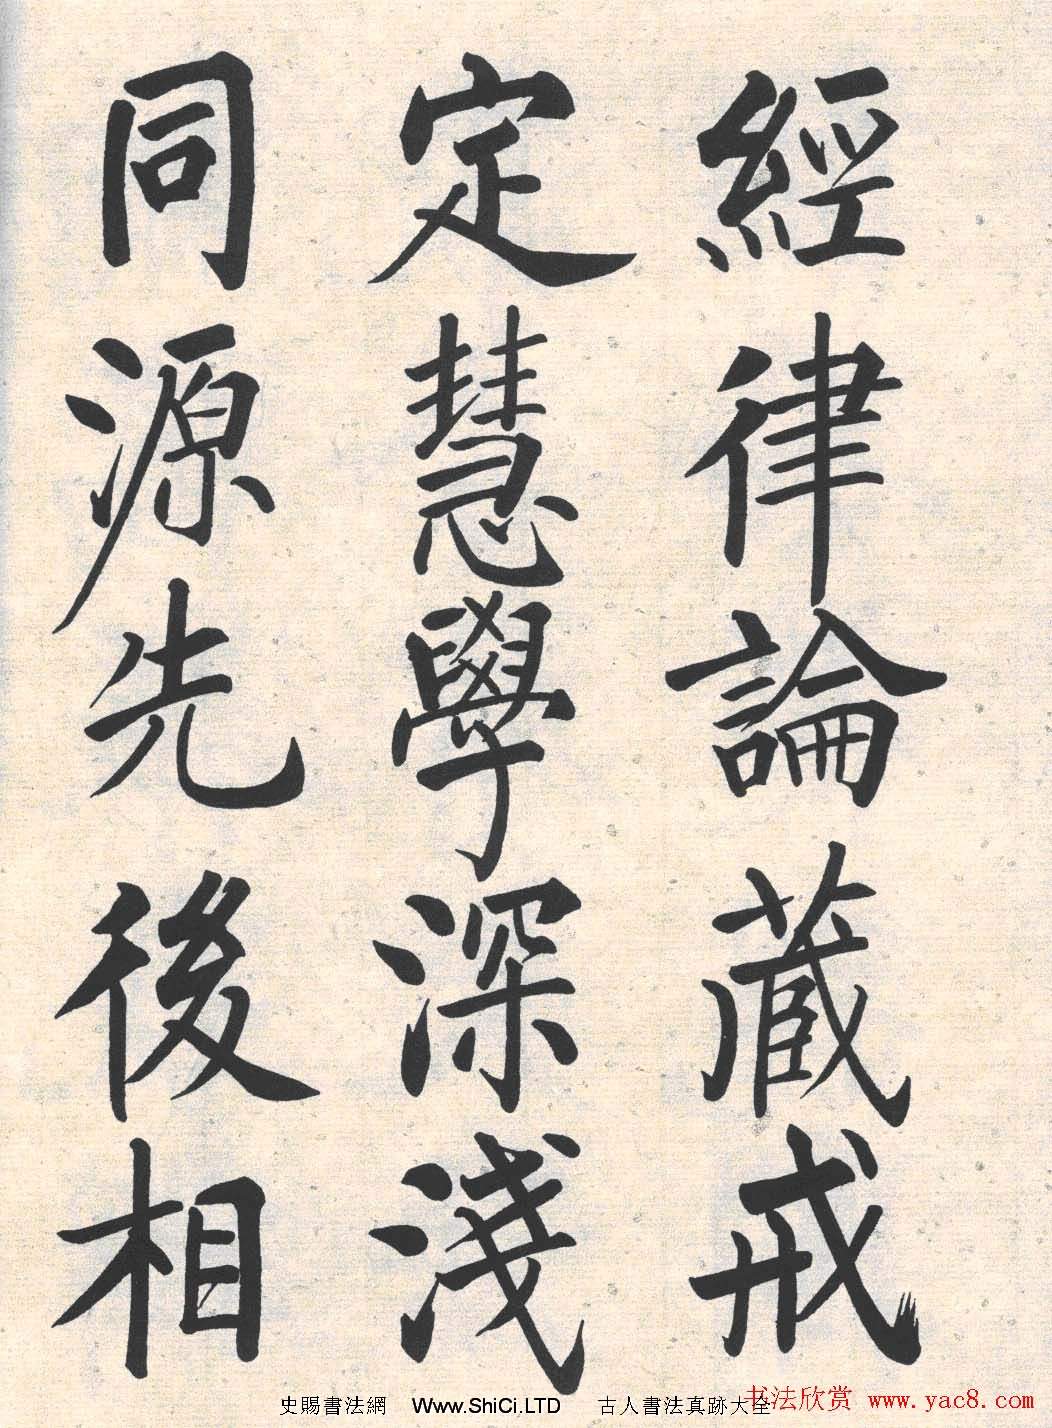 經律論藏戒
定慧學深淺
同源先後相
史賜書法網 Www.ShiCi.LTD 古人書法真跡大全
书法欣赏 www.yac8.com